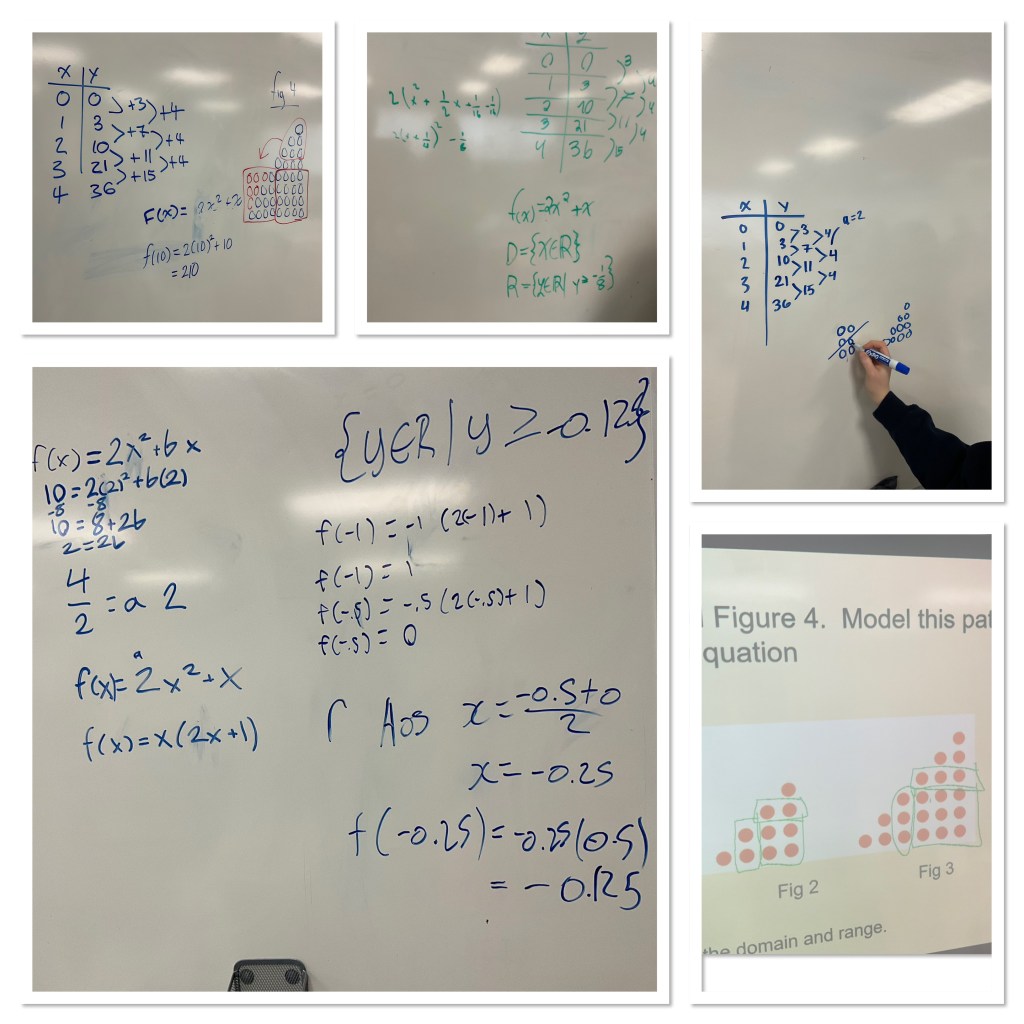 x y
0 0
1 3
2 10
3 21
4 36
+3
+7
+11
+15
+4
+4
+4
fig 4
f(10) = 2(10)² + 10
= 210
2(x² + 1/2 x + 1/16 - 1/16)
0 0
1 3
2 10
3 21
4 36
3
7
11
15
4
4
f(x) = 2x² + x
D = {x∈R}
R = {y∈R | y ≥ -1/8}
x y
0 0
1 3
2 10
3 21
4 36
3
7
11
15
4
4
4
a=2
f(x) = 2x² + b x
10 = 2(2)² + b(2)
-8 -8
10 = 8 + 2b
2 = 2b
4/2 = a 2
a
f(x) = 2x² + x
f(x) = x(2x+1)
{y∈R | y ≥ -0.12
f(-1) = -1 (2(-1) + 1)
f(-1) = 1
f(-.5) = -.5 (2(-.5) + 1)
f(-.5) = 0
AOS x = -0.5+0/2
x = -0.25
f(-0.25) = -0.25(0.5)
= -0.125
Figure 4. Model this pat
quation
Fig 2
Fig 3
the domain and range.